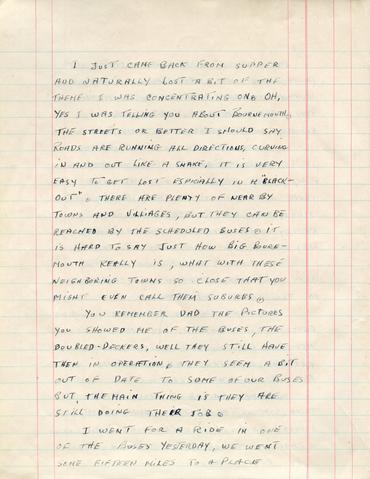 I JUST CAME BACK FROM SUPPER
AND NATURALLY LOST A BIT OF THE
THEME I WAS CONCENTRATING ON. OH,
YES I WAS TELLING YOU ABOUT BOURNEMOUTH.
THE STREETS OR BETTER I SHOULD SAY
ROADS ARE RUNNING ALL DIRECTIONS, CURVING
IN AND OUT LIKE A SNAKE. IT IS VERY
EASY TO GET LOST ESPICIALLY IN A "BLACK-
OUT". THERE ARE PLENTY OF NEAR BY
TOWNS AND VILLIAGES, BUT THEY CAN BE
REACHED BY THE SCHEDULED BUSES. IT
IS HARD TO SAY JUST HOW BIG BOURE-
MOUTH REALLY IS, WHAT WITH THESE
NEIGHBORING TOWNS SO CLOSE THAT YOU
MIGHT EVEN CALL THEM SUBURBS.
YOU REMEMBER DAD THE PICTURES
YOU SHOWED ME OF THE BUSES, THE
DOUBLED-DECKERS, WELL THEY STILL HAVE
THEN IN OPERATION. THEY SEEM A BIT
OUT OF DATE TO SOME OF OUR BUSES
BUT, THE MAIN THING IS THEY ARE
STILL DOING THEIR JOB.
I WENT FOR A RIDE IN ONE
OF THE BUSES YESTERDAY, WE WENT
SOME FIFTEEN MILES TO A PLACE